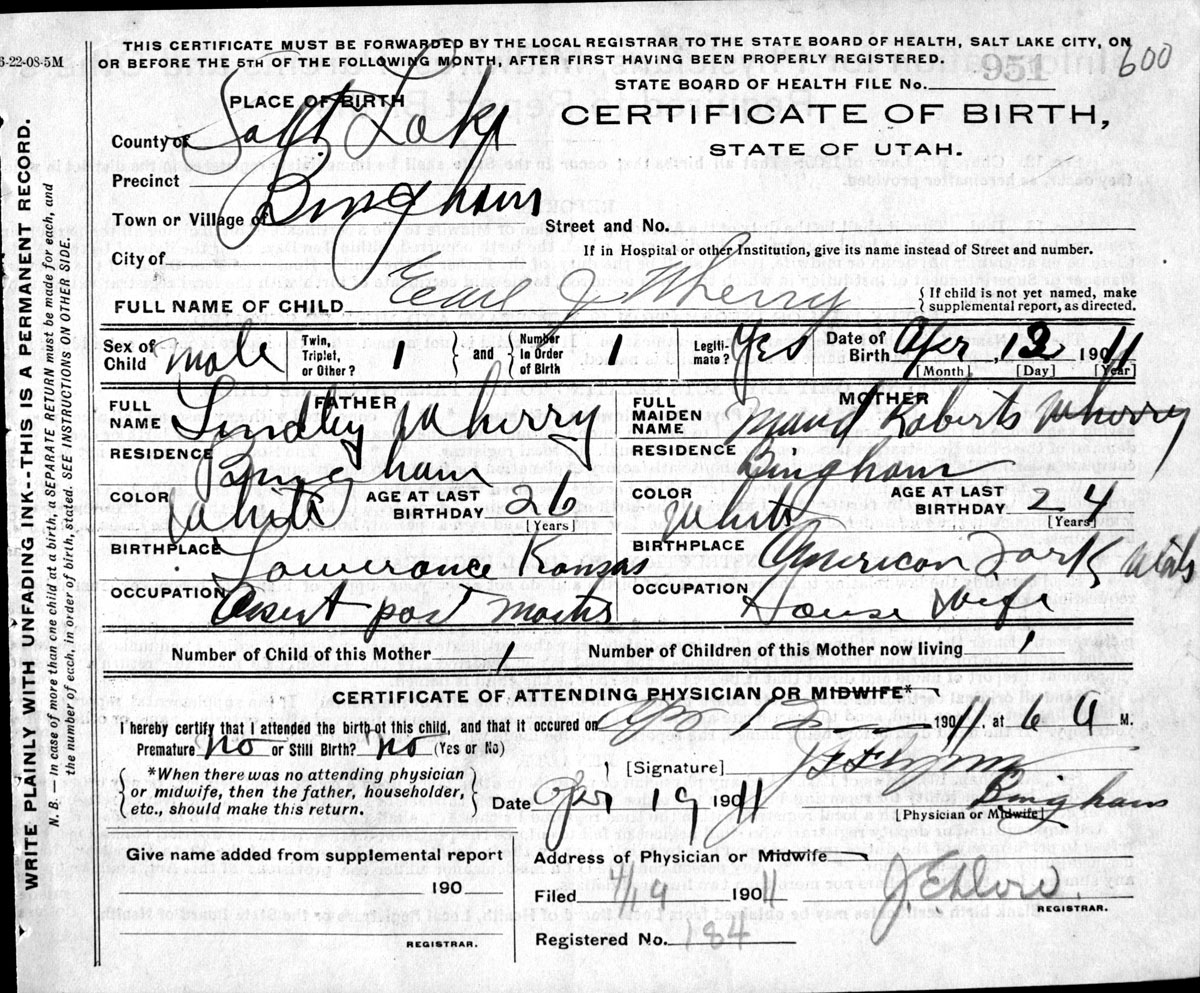 6-22-08-5M
THIS CERTIFICATE MUST BE FORWARDED BY THE LOCAL REGISTRAR TO THE STATE BOARD OF HEALTH, SALT LAKE CITY, ON
OR BEFORE THE 5TH OF THE FOLLOWING MONTH, AFTER FIRST HAVING BEEN PROPERLY REGISTERED.
600
951
STATE BOARD OF HEALTH FILE No.
PLACE OF BIRTH
CERTIFICATE OF BIRTH,
STATE OF UTAH.
County of Salt Lake
Precinct
Town or Village of Bingham
Street and No.
If in Hospital or other Institution, give its name instead of Street and number.
City of
FULL NAME OF CHILD Earl J Wherry
{ If child is not yet named, make
supplemental report, as directed.
Sex of Child male Twin, Triplet, or Other? 1 } and { Number in Order of Birth 1 Legitimate? Yes Date of Birth Apr 12 1911
[Month] [Day] [Year]
FATHER
FULL NAME Lindley Wherry
RESIDENCE Bingham
COLOR White AGE AT LAST BIRTHDAY 26
[Years]
BIRTHPLACE Lawerance Kansas
OCCUPATION Assist post
MOTHER
FULL MAIDEN NAME Maud Roberts Wherry
RESIDENCE Bingham
COLOR White AGE AT LAST BIRTHDAY 24
[Years]
BIRTHPLACE American Fork Utah
OCCUPATION House Wife
Number of Child of this Mother 1 Number of Children of this Mother now living 1
CERTIFICATE OF ATTENDING PHYSICIAN OR MIDWIFE*
I hereby certify that I attended the birth of this child, and that it occurred on 1911, at 6 A M.
Premature no or Still Birth? no (Yes or No)
[Signature]
*When there was no attending physician
or midwife, then the father, householder,
etc., should make this return.
Date Apr 19 1911 Bingham
[Physician or Midwife]
Give name added from supplemental report
190
REGISTRAR.
Address of Physician or Midwife
Filed 4/19 1911
REGISTRAR.
Registered No. 184
WRITE PLAINLY WITH UNFADING INK--THIS IS A PERMANENT RECORD.
N. B. — In case of more than one child at a birth, a SEPARATE RETURN must be made for each, and
the number of each, in order of birth, stated. SEE INSTRUCTIONS ON OTHER SIDE.